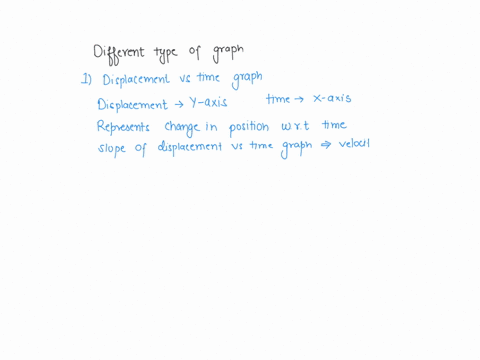 Different type of graph
1) Displacement vs time graph
Displacement → Y-axis time → X-axis
Represents change in position w.r.t time
slope of displacement vs time graph ⇒ velocit